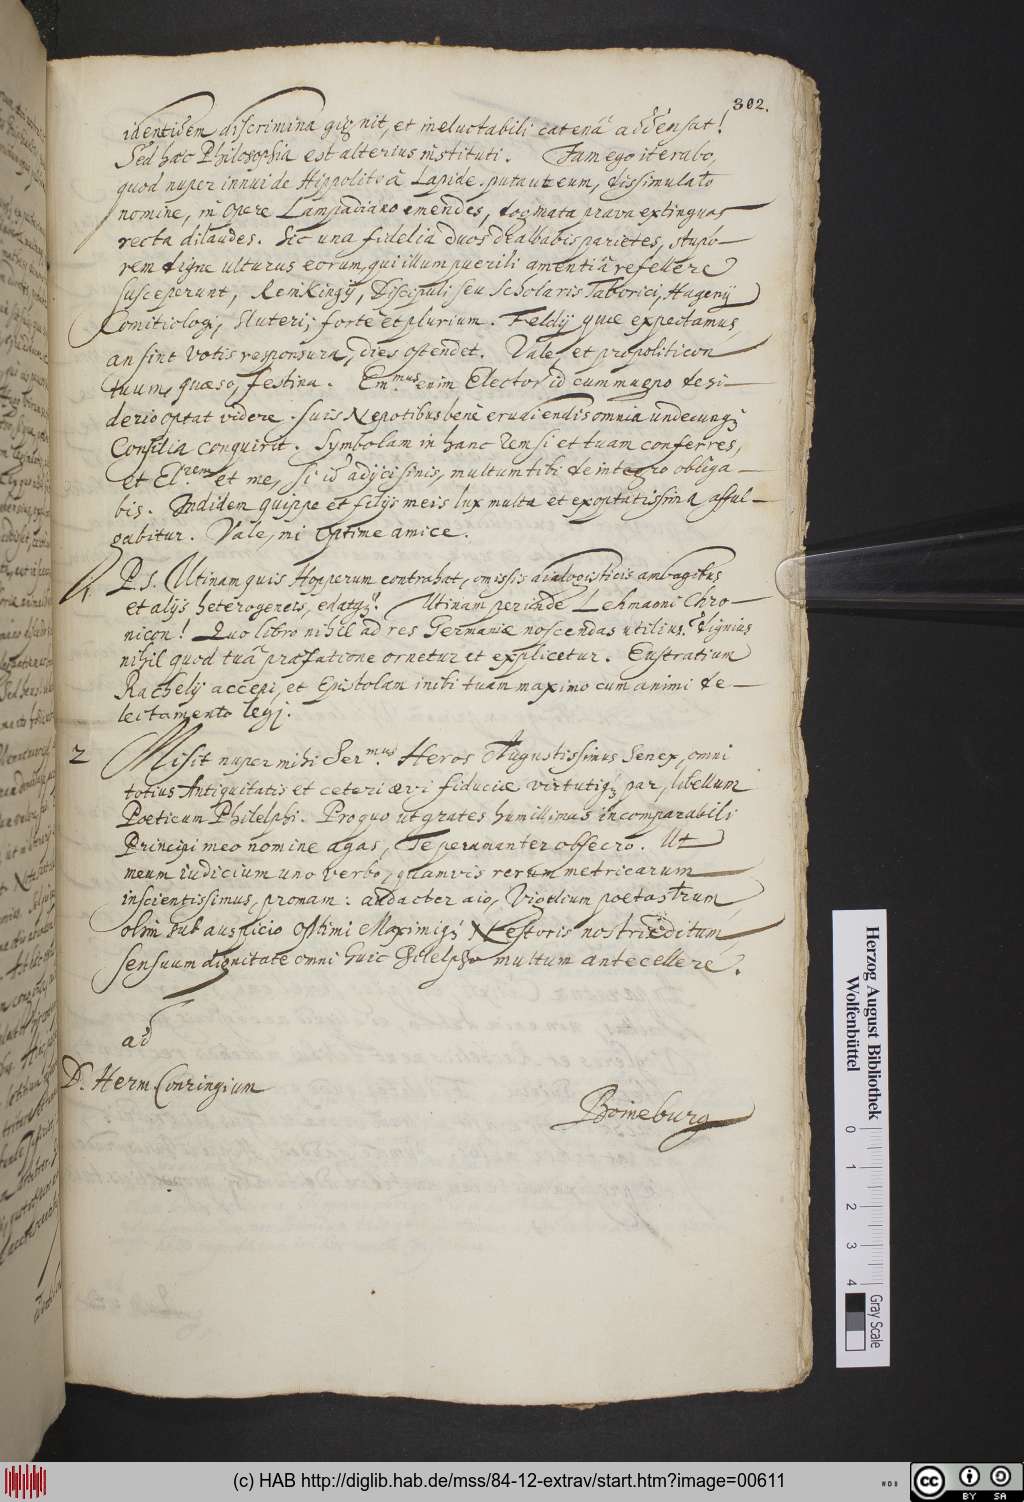 302.
identidem discrimina gignit, et ineluctabili catenâ addensat!
Sed hæc Philosophia est alterius instituti. Jam ego iterabo,
quod nuper innui de Hippolito à Lapide. puta ut eum, dissimulato
nomine, in Opere Lampadiano emendes, dogmata prava extinguas
recta dilaudes. Sic una fidelia duos dealbabis parietes, stupo-
rem digne ulturus eorum, qui illum puerili amentiâ refellere
susceperunt, Reinkingij, Discipuli seu Scholaris Taborici, Hugenij
Comitiologi, Sluteri; forte et plurium. Feldij quæ expectamus,
an sint votis responsura, dies ostendet. Vale, et propoliticon
tuum, quæso, festina. Em.mus enim Elector id cum magno desi-
derio optat videre. suis Nepotibus bene erudiendis omnia undecunq3
Consilia conquirit. Symbolam in hanc rem si et tuam conferres,
et El.rem et me, si id adijci sinis, multum tibi de integro obliga-
bis. Indidem quippe et filijs meis lux multa et exoptatissima afful-
gabitur. Vale, mi Optime amice.
1. P.S. Utinam quis Hopperum contrahat, omissis dialogisticis ambagibus
et alijs heterogeneis, edatq3! Utinam perinde Lehmanni Chro-
nicon! Quo libro nihil ad res Germaniæ noscendas utilius. Dignius
nihil quod tuâ præfatione ornetur et explicetur. Eustratium
Rachelij accepi, et Epistolam inibi tuam maximo cum animi de-
lectamento legi.
2 Misit nuper mihi Ser.mus Heros Augustissimus Senex, omni
totius Antiquitatis et ceteri ævi fiduciæ virtutiq3 par, libellum
Poeticum Philelphi. Pro quo ut grates humillimas incomparabili
Principi meo nomine agas, Te peramanter obsecro. Ut
meum iudicium uno verbo, quamvis rerum metricarum
inscientissimus, promam: audacter aio, Vigilium poetastrum
olim sub auspicio Optimi Maximiq3 Nestoris nostri editum,
sensuum dignitate omni huic Philelpho multum antecellere.
ad
D. Herm. Conringium
Boineburg
Herzog August Bibliothek
Wolfenbüttel
0 1 2 3 4
Gray Scale
(c) HAB http://diglib.hab.de/mss/84-12-extrav/start.htm?image=00611
cc BY SA